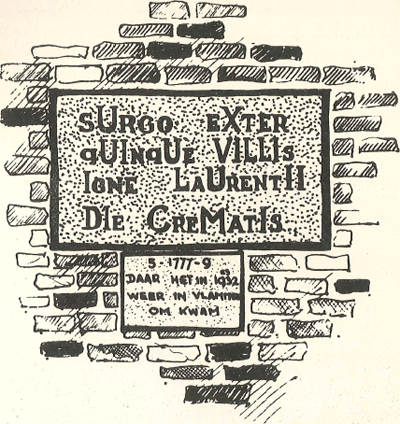 sURGO eXTER
qUInqUE VILLIs
IGnE LaURentII
DIE CReMatIs
5 - 1777 - 9
DAAR HET IN 1932
WEER IN VLAMMEN
OM KWAM